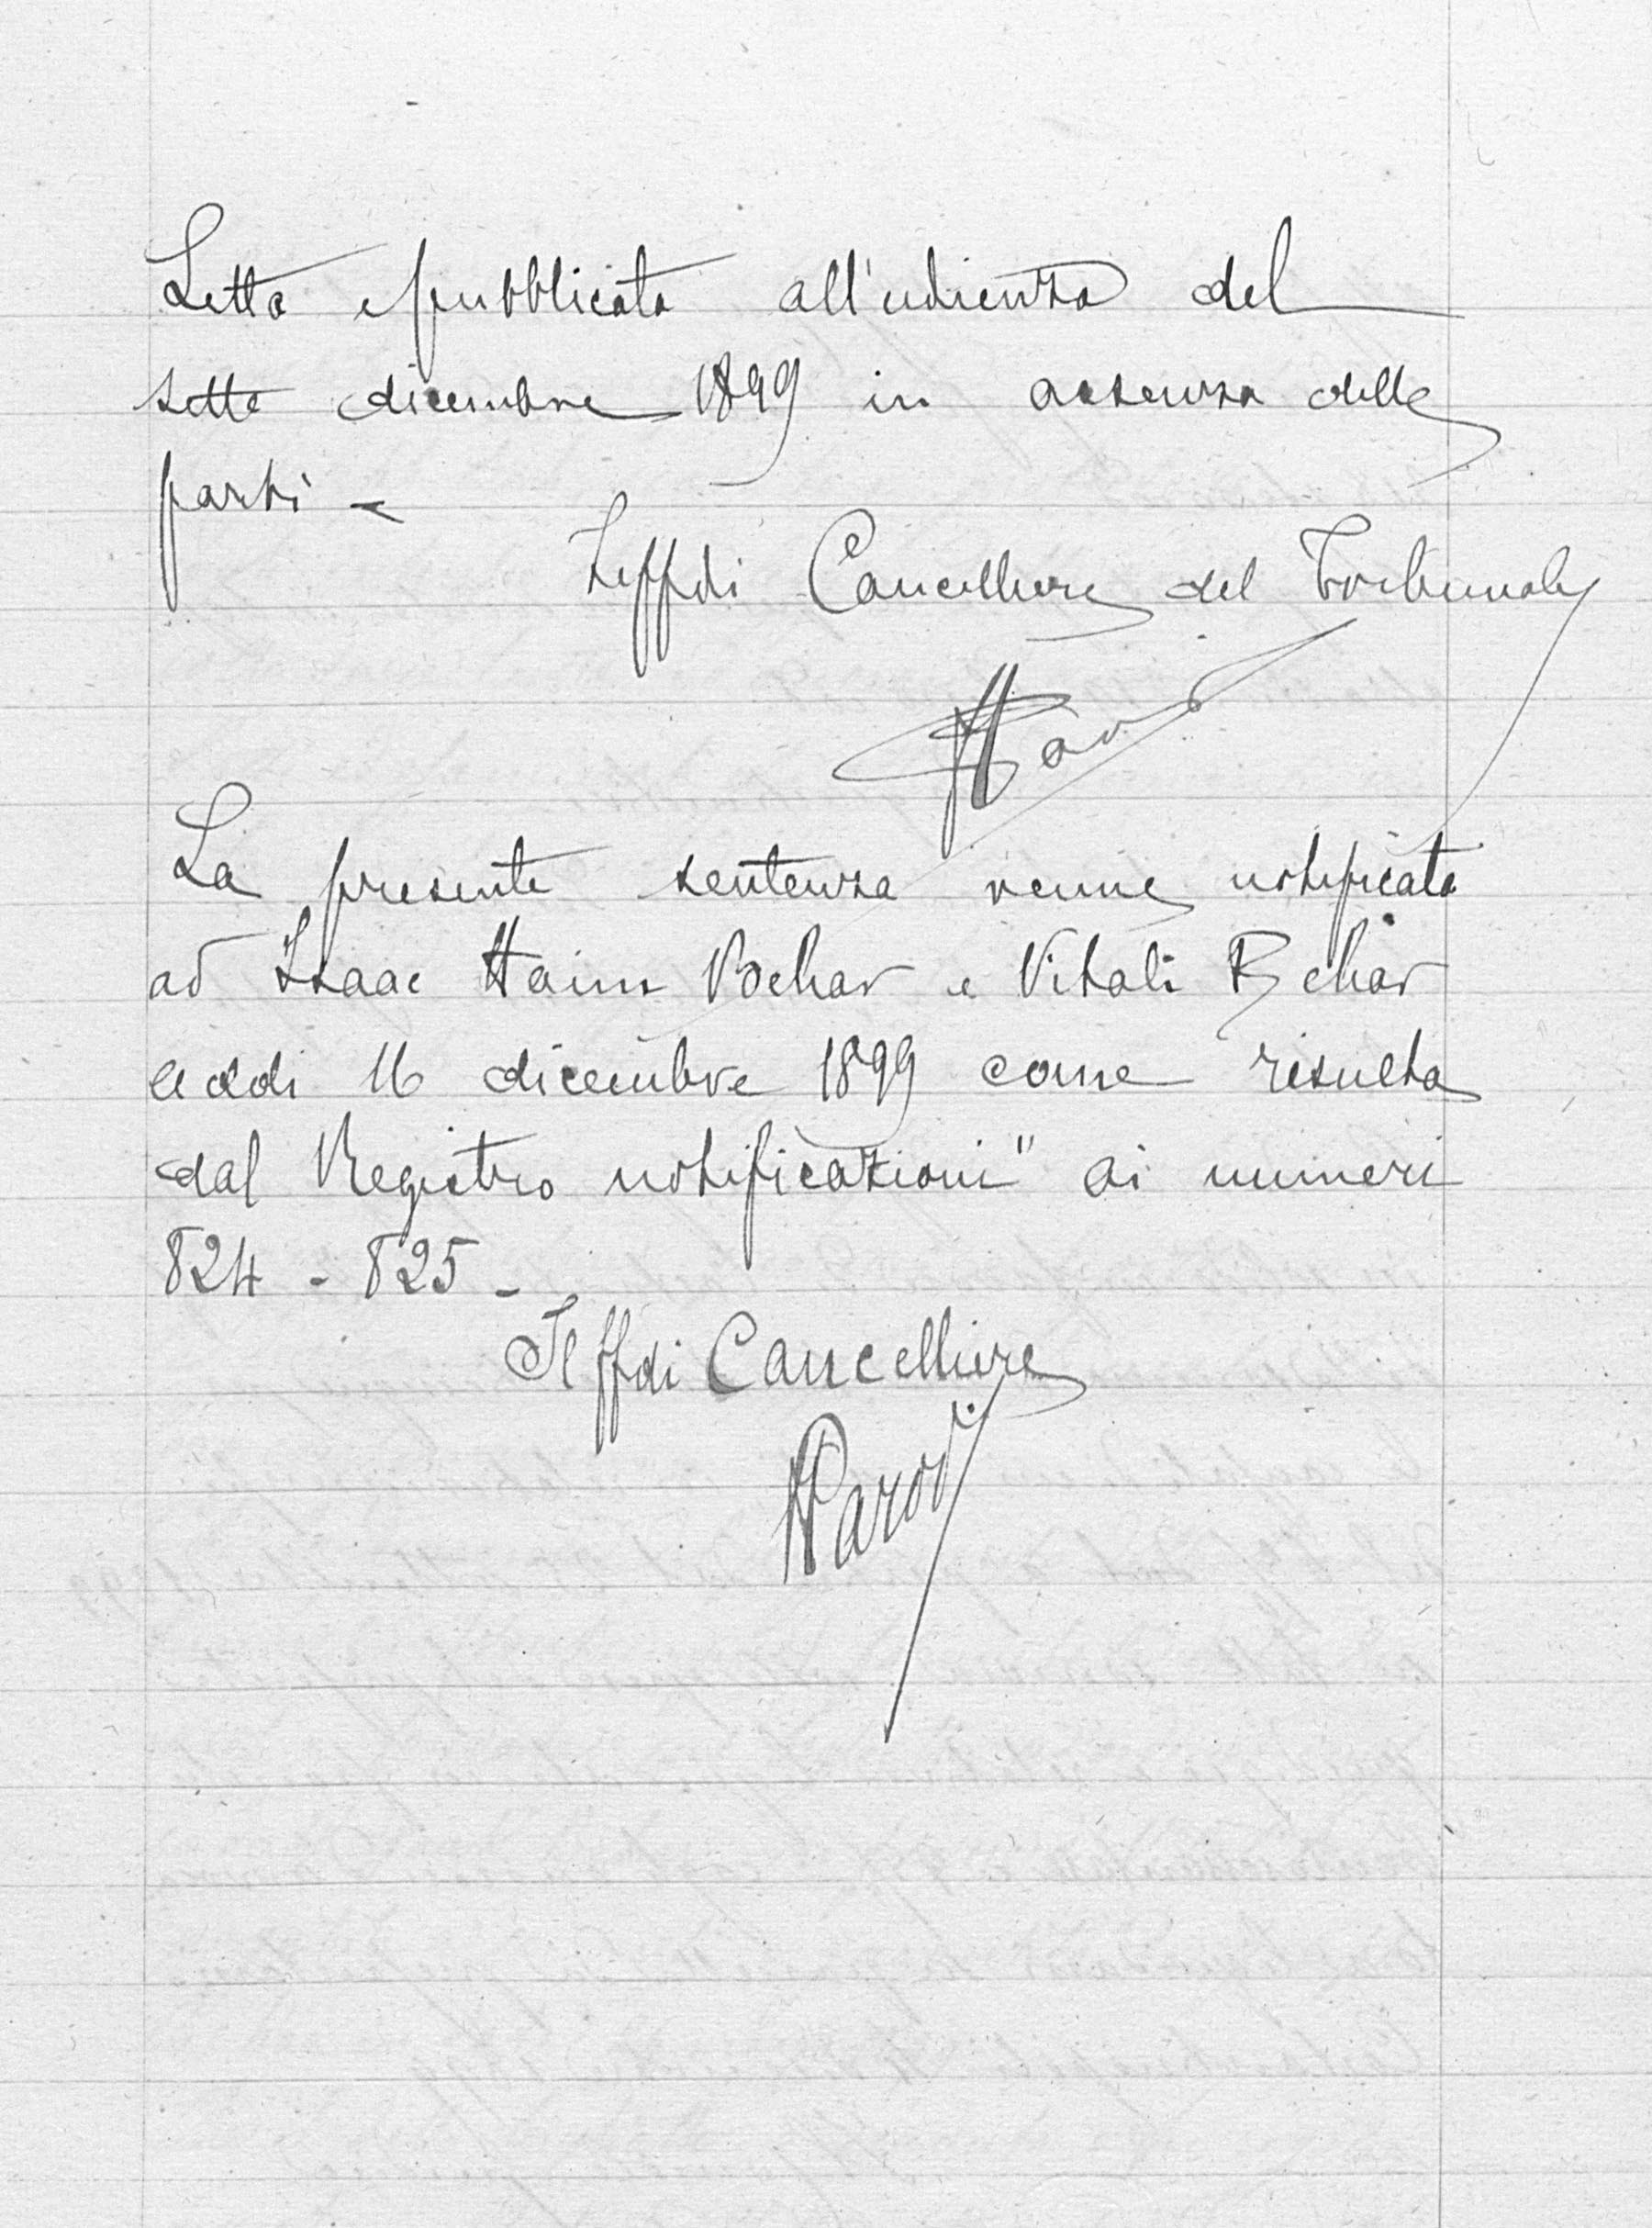 Letta e pubblicata all'udienza del
sette dicembre 1899 in assenza delle
parti -
Il ff di Cancelliere del Tribunale
La presente sentenza venne notificata
ad Isaac Haim Behar e Vitali Behar
addi 16 dicembre 1899 come risulta
dal Registro notificazioni" ai numeri
824 - 825 -
Il ff di Cancelliere
Parodi